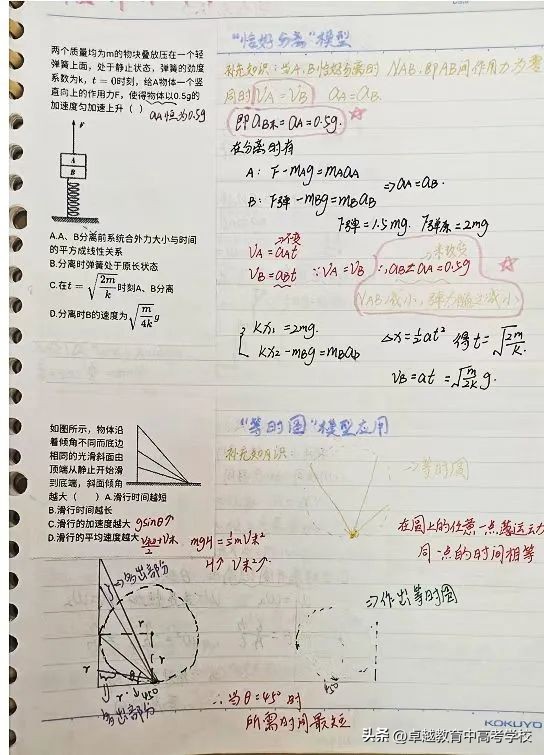 "恰好分离"模型
两个质量均为m的物块叠放压在一个轻
弹簧上面，处于静止状态，弹簧的劲度
系数为k，t = 0时刻，给A物体一个竖
直向上的作用力F，使得物体以0.5g的
加速度匀加速上升（ ）aA恒为0.5g
F
A
B
A.A、B分离前系统合外力大小与时间
的平方成线性关系
B.分离时弹簧处于原长状态
C.在t = √(2m/k) 时刻A、B分离
D.分离时B的速度为√(m/4k) g
补充知识：当A,B恰好分离时 NAB,即AB间作用力为零
同时VA = VB aA = aB.
即aB末=aA=0.5g.
在分离时有
A: F - mAg = mAaA
⇒aA=aB.
B: F弹 - mBg = mBaB
F弹=1.5mg. F弹原=2mg
⇒不变
VA = aAt
VB = aBt ∵VA = VB ∴aB≠aA=0.5g
NAB减小，弹力随之减小
Kx1 = 2mg.
Kx2 - mBg = mBaB
Δx=½at² 得t=√(2m/k).
VB=at=√(m/2k) g.
"等时圆"模型应用
如图所示，物体沿
着倾角不同而底边
相同的光滑斜面由
顶端从静止开始滑
到底端，斜面倾角
越大（ ）A.滑行时间越短
B.滑行时间越长
C.滑行的加速度越大 gsinθ↑
D.滑行的平均速度越大
补充知识:
⇒等时圆
在圆上的任意一点
同一点的时间相等
mgH=½mV末²
H↑ V末²↑.
⇒多出部分
r
r
r
r
θ
45°
多出部分
⇒作出等时圆
45°
∴当θ=45°时
所需时间最短
KOKUYO
头条 @卓越教育中高考学校